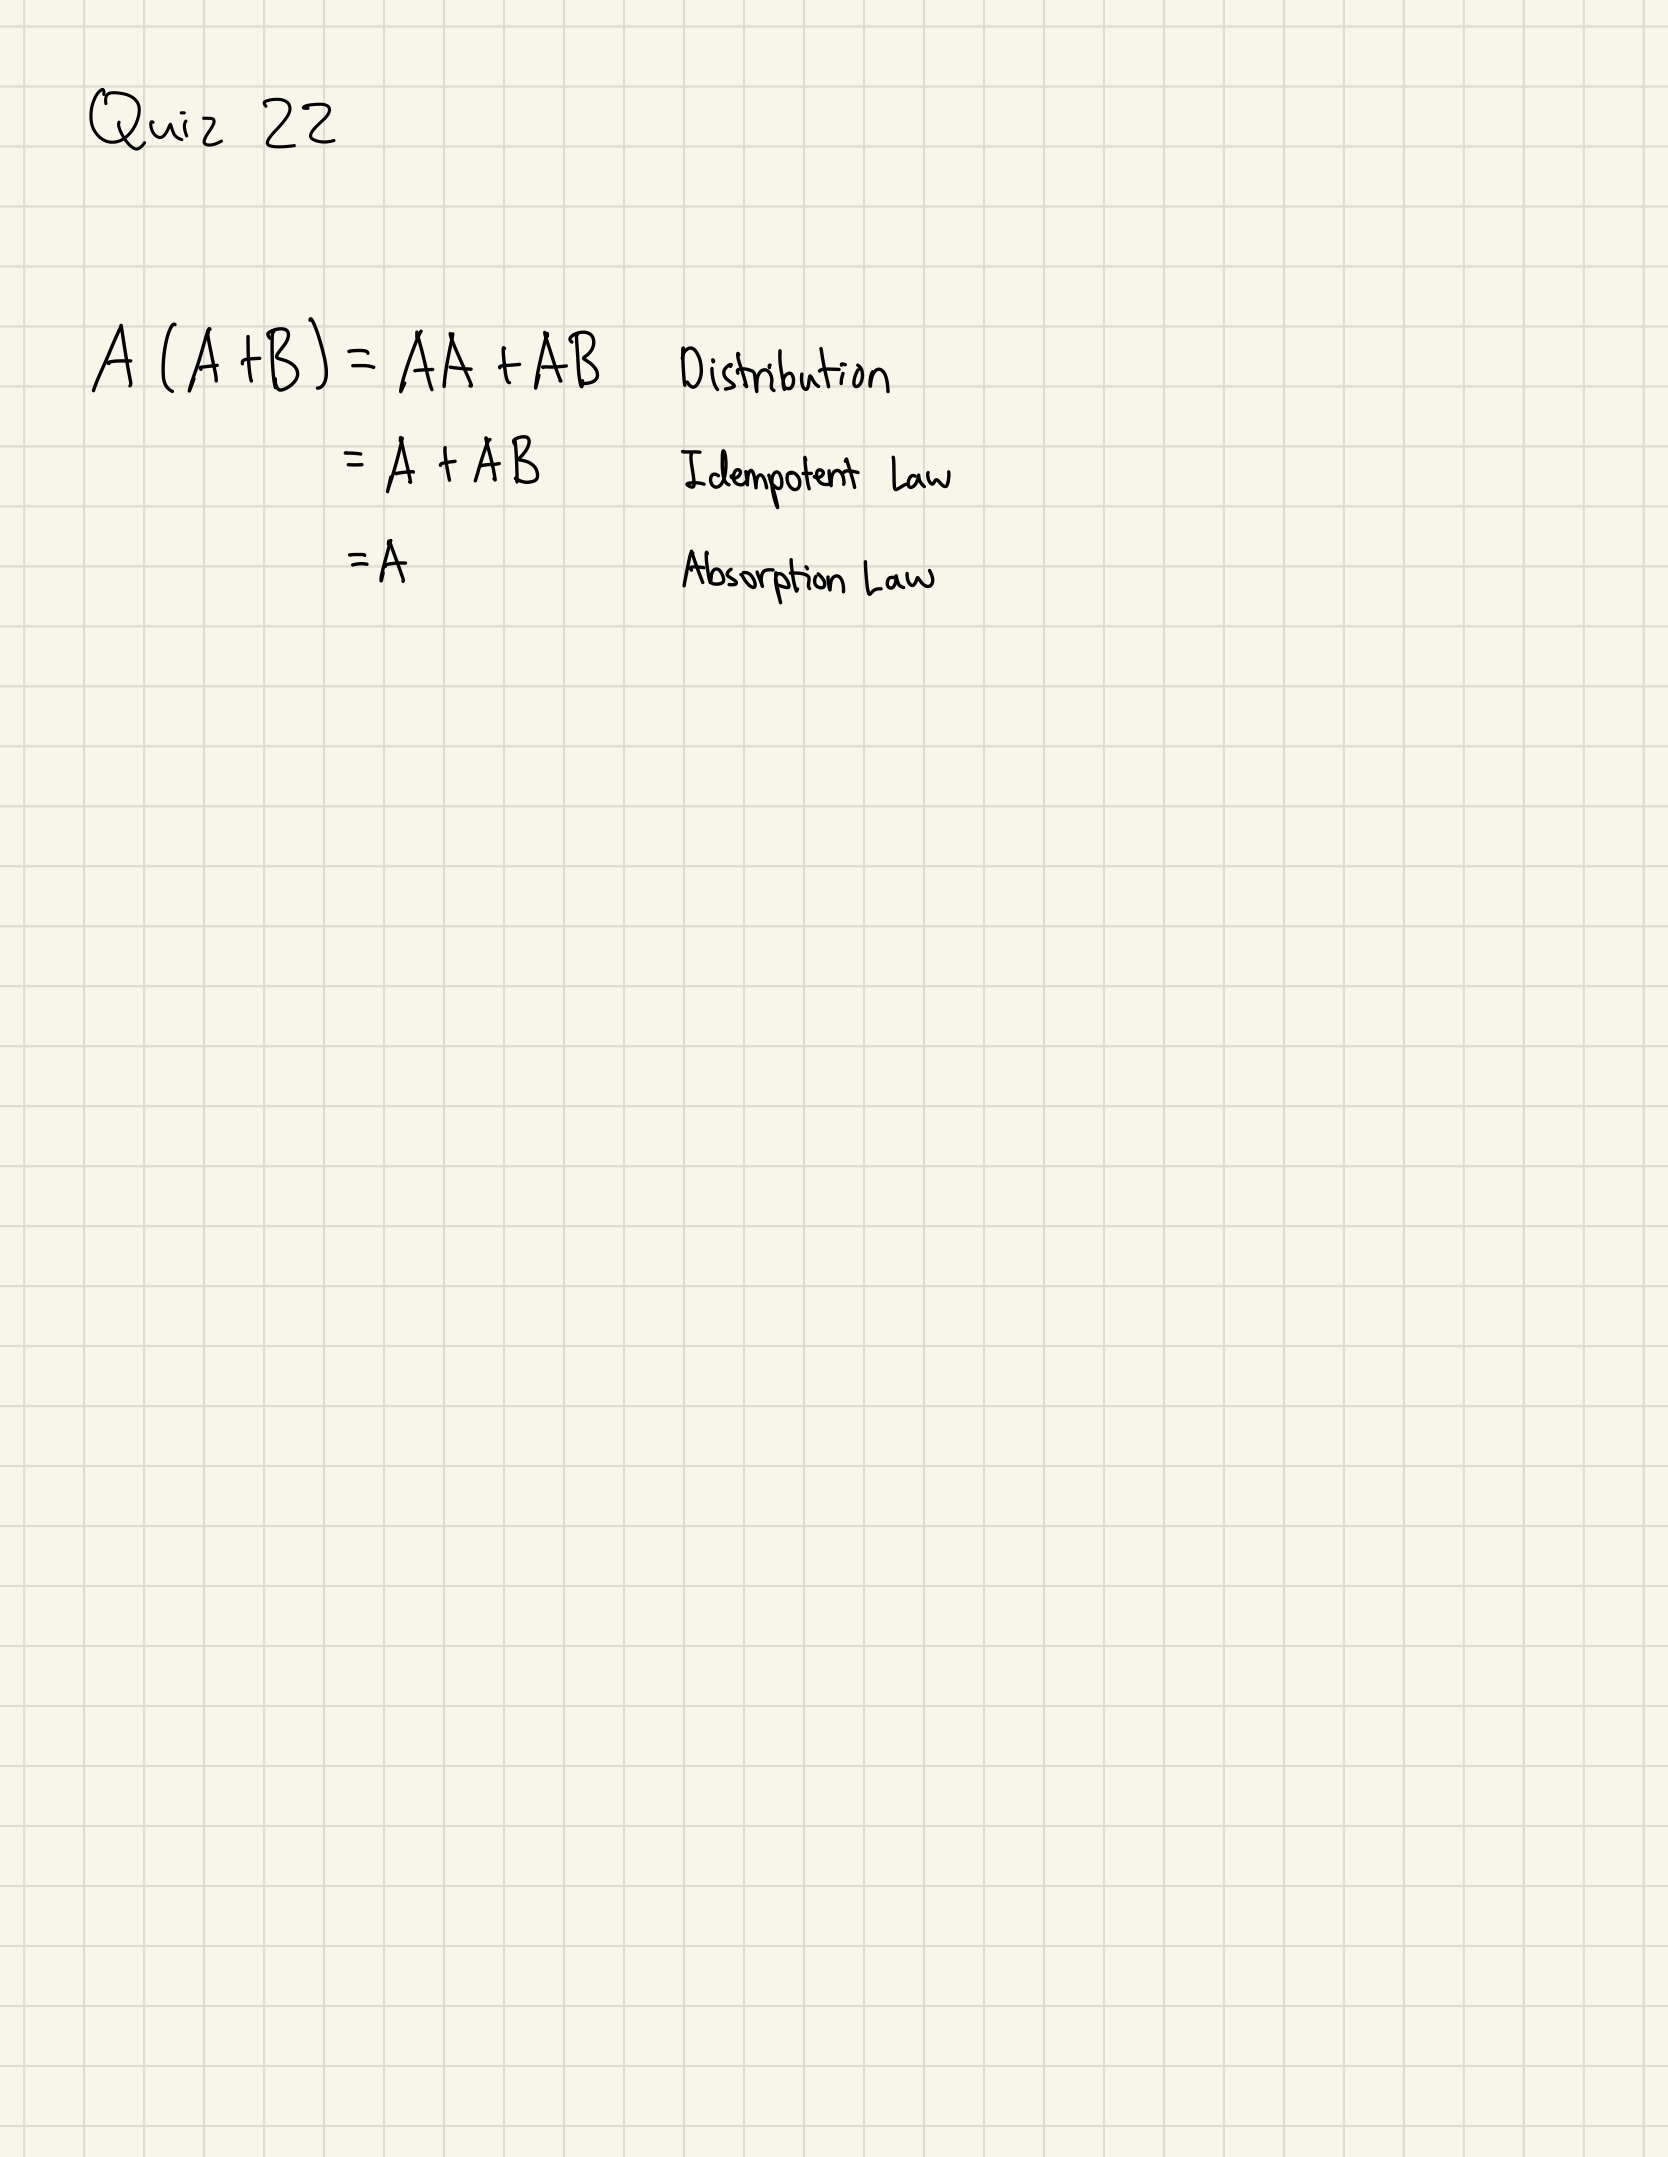 Quiz 22
A(A+B) = AA + AB Distribution
= A + AB Idempotent Law
= A Absorption Law